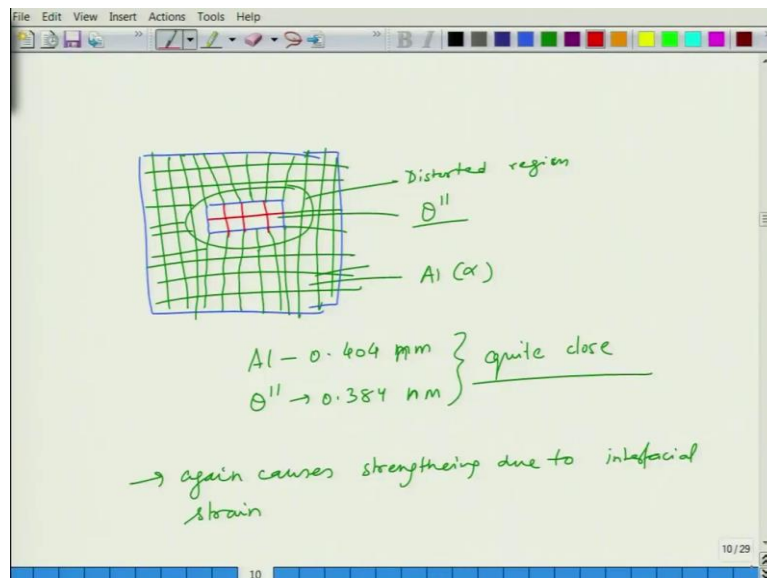 File Edit View Insert Actions Tools Help
B I
Distorted region
θ"
Al (α)
Al – 0.404 nm
θ" → 0.384 nm
quite close
→ again causes strengtheing due to intefacial
strain
10/29
10